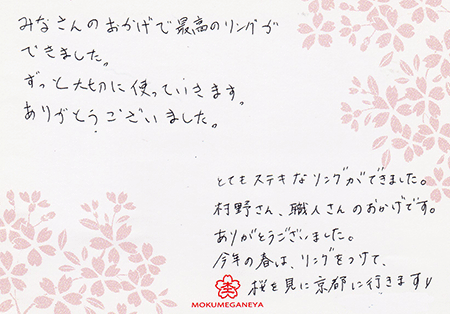 みなさんのおかげで最高のリングが
できました。
ずっと大切に使っていきます。
ありがとうございました。
とてもステキなリングができました。
村野さん、職人さんのおかげです。
ありがとうございました。
今年の春は、リングをつけて、
桜を見に京都に行きます!!
MOKUMEGANEYA